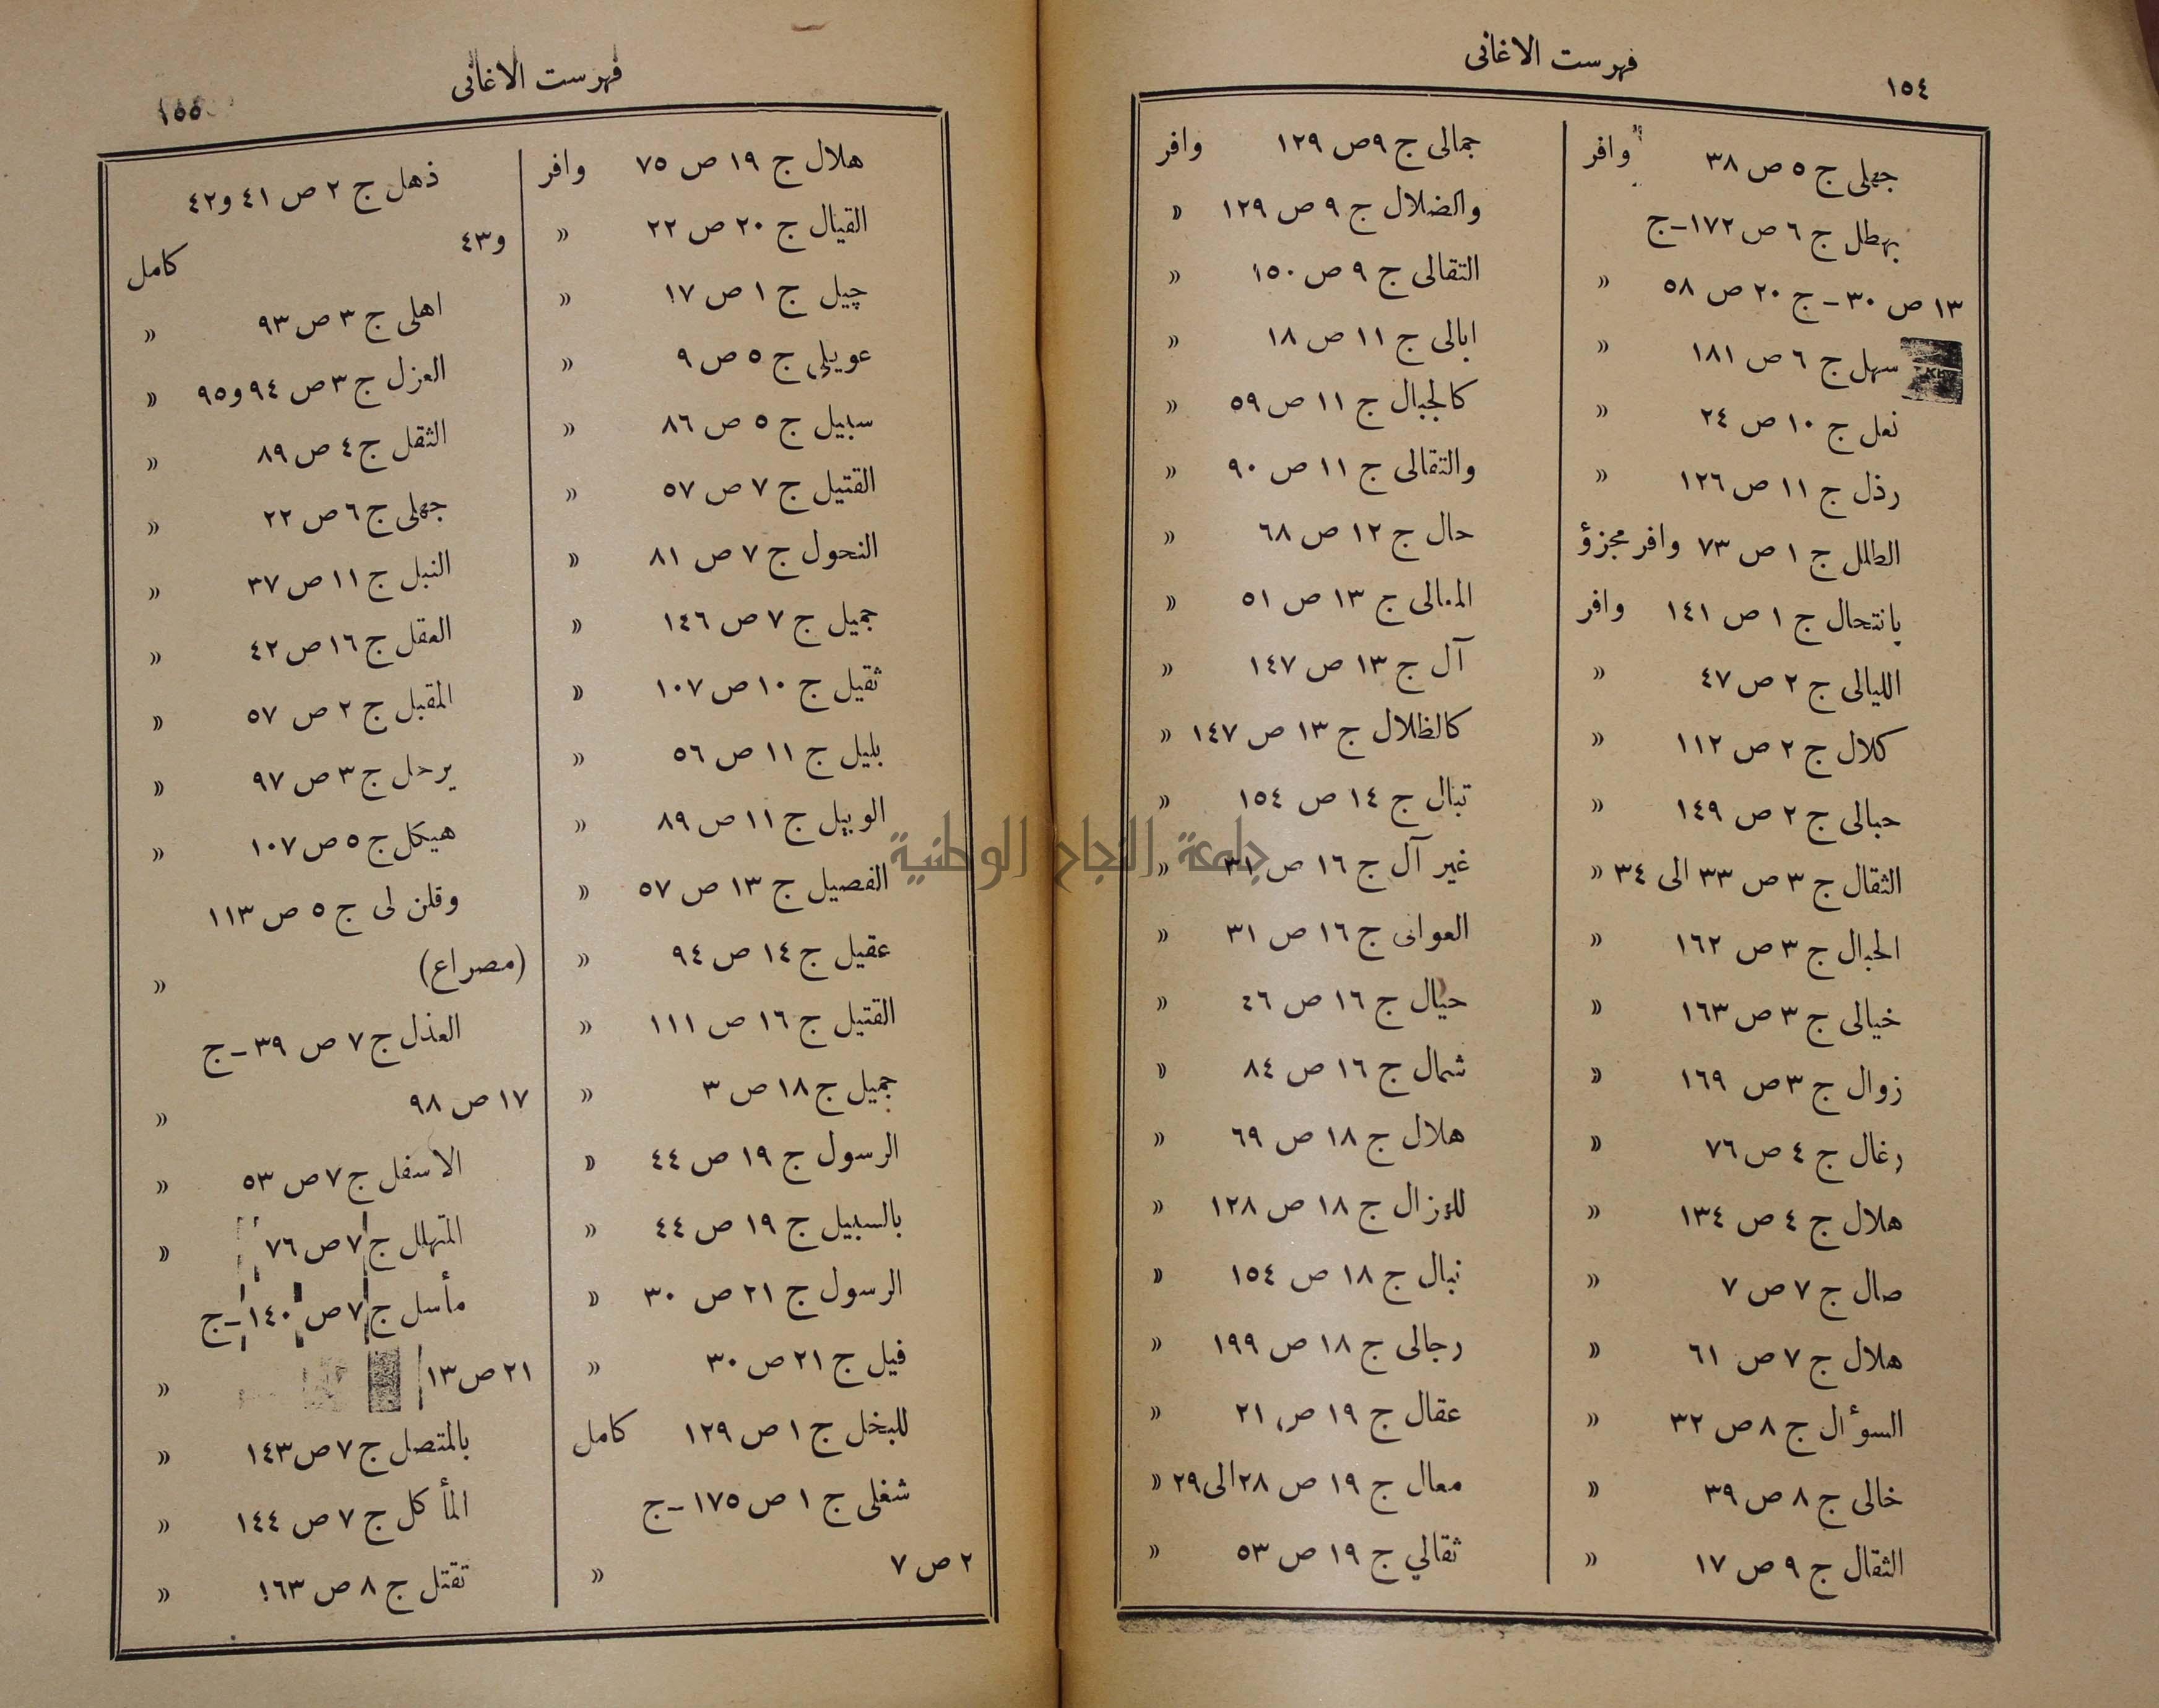 ١٥٤
فهرست الاغانى
جهلى ج ٥ ص ٣٨ وافر
بهطل ج ٦ ص ١٧٢ـ ج
١٣ ص ٣٠ ـ ج ٢٠ ص ٥٨ »
سهل ج ٦ ص ١٨١ »
نعل ج ١٠ ص ٢٤ »
رذل ج ١١ ص ١٢٦ »
الطلل ج ١ ص ٧٣ وافر مجزؤ
بانتحال ج ١ ص ١٤١ وافر
الليالى ج ٢ ص ٤٧ »
كلال ج ٢ ص ١١٢ »
حبالى ج ٢ ص ١٤٩ »
الثقال ج ٣ ص ٣٣ الى ٣٤ »
الحبال ج ٣ ص ١٦٢ »
خيالى ج ٣ ص ١٦٣ »
زوال ج ٣ ص ١٦٩ »
رغال ج ٤ ص ٧٦ »
هلال ج ٤ ص ١٣٤ »
صال ج ٧ ص ٧ »
هلال ج ٧ ص ٦١ »
السؤال ج ٨ ص ٣٢ »
خالى ج ٨ ص ٣٩ »
الثقال ج ٩ ص ١٧ »
جمالى ج ٩ ص ١٢٩ وافر
والضلال ج ٩ ص ١٢٩ »
التقالى ج ٩ ص ١٥٠ »
ابالى ج ١١ ص ١٨ »
كالجبال ج ١١ ص ٥٩ »
والتقالى ج ١١ ص ٩٠ »
حال ج ١٢ ص ٦٨ »
المعالى ج ١٣ ص ٥١ »
آل ج ١٣ ص ١٤٧ »
كالظلال ج ١٣ ص ١٤٧ »
تبال ج ١٤ ص ١٥٤ »
غير آل ج ١٦ ص ٣١ »
العوانى ج ١٦ ص ٣١ »
حيال ج ١٦ ص ٤٦ »
شمال ج ١٦ ص ٨٤ »
هلال ج ١٨ ص ٦٩ »
ج ١٨ ص ١٢٨ »
نبال ج ١٨ ص ١٥٤ »
رجالى ج ١٨ ص ١٩٩ »
عقال ج ١٩ ص ٢١ »
معال ج ١٩ ص ٢٨ الى ٢٩ »
ثقالي ج ١٩ ص ٥٣ »
فهرست الاغانى
١٥٥
هلال ج ١٩ ص ٧٥ وافر
القيال ج ٢٠ ص ٢٢ »
جيل ج ١ ص ١٧ »
عويلى ج ٥ ص ٩ »
سبيل ج ٥ ص ٨٦ »
القتيل ج ٧ ص ٥٧ »
النحول ج ٧ ص ٨١ »
جميل ج ٧ ص ١٤٦ »
ثقيل ج ١٠ ص ١٠٧ »
بليل ج ١١ ص ٥٦ »
الوبيل ج ١١ ص ٨٩ »
الفصيل ج ١٣ ص ٥٧ »
عقيل ج ١٤ ص ٩٤ »
القتيل ج ١٦ ص ١١١ »
جميل ج ١٨ ص ٣ »
الرسول ج ١٩ ص ٤٤ »
بالسبيل ج ١٩ ص ٤٤ »
الرسول ج ٢١ ص ٣٠ »
فيل ج ٢١ ص ٣٠ »
للبخل ج ١ ص ١٢٩ كامل
شغلى ج ١ ص ١٧٥ ـ ج
٢ ص ٧ »
ذهل ج ٢ ص ٤١ و٤٢
و٤٣ كامل
اهلى ج ٣ ص ٩٣ »
العزل ج ٣ ص ٩٤ و٩٥ »
الثقل ج ٤ ص ٨٩ »
جهلى ج ٦ ص ٢٢ »
النبل ج ١١ ص ٣٧ »
العقل ج ١٦ ص ٤٢ »
المقبل ج ٢ ص ٥٧ »
يرحل ج ٣ ص ٩٧ »
هيكل ج ٥ ص ١٠٧ »
وقلن لى ج ٥ ص ١١٣
(مصراع) »
العذل ج ٧ ص ٣٩ ـ ج
١٧ ص ٩٨ »
الاسفل ج ٧ ص ٥٣ »
المتهلل ج ٧ ص ٧٦ »
مأسل ج ٧ ص ١٤٠ ـ ج
٢١ ص ١٣ »
بالمتصل ج ٧ ص ١٤٣ »
المأكل ج ٧ ص ١٤٤ »
تقتل ج ٨ ص ١٦٣ »
جامعة النجاح الوطنية